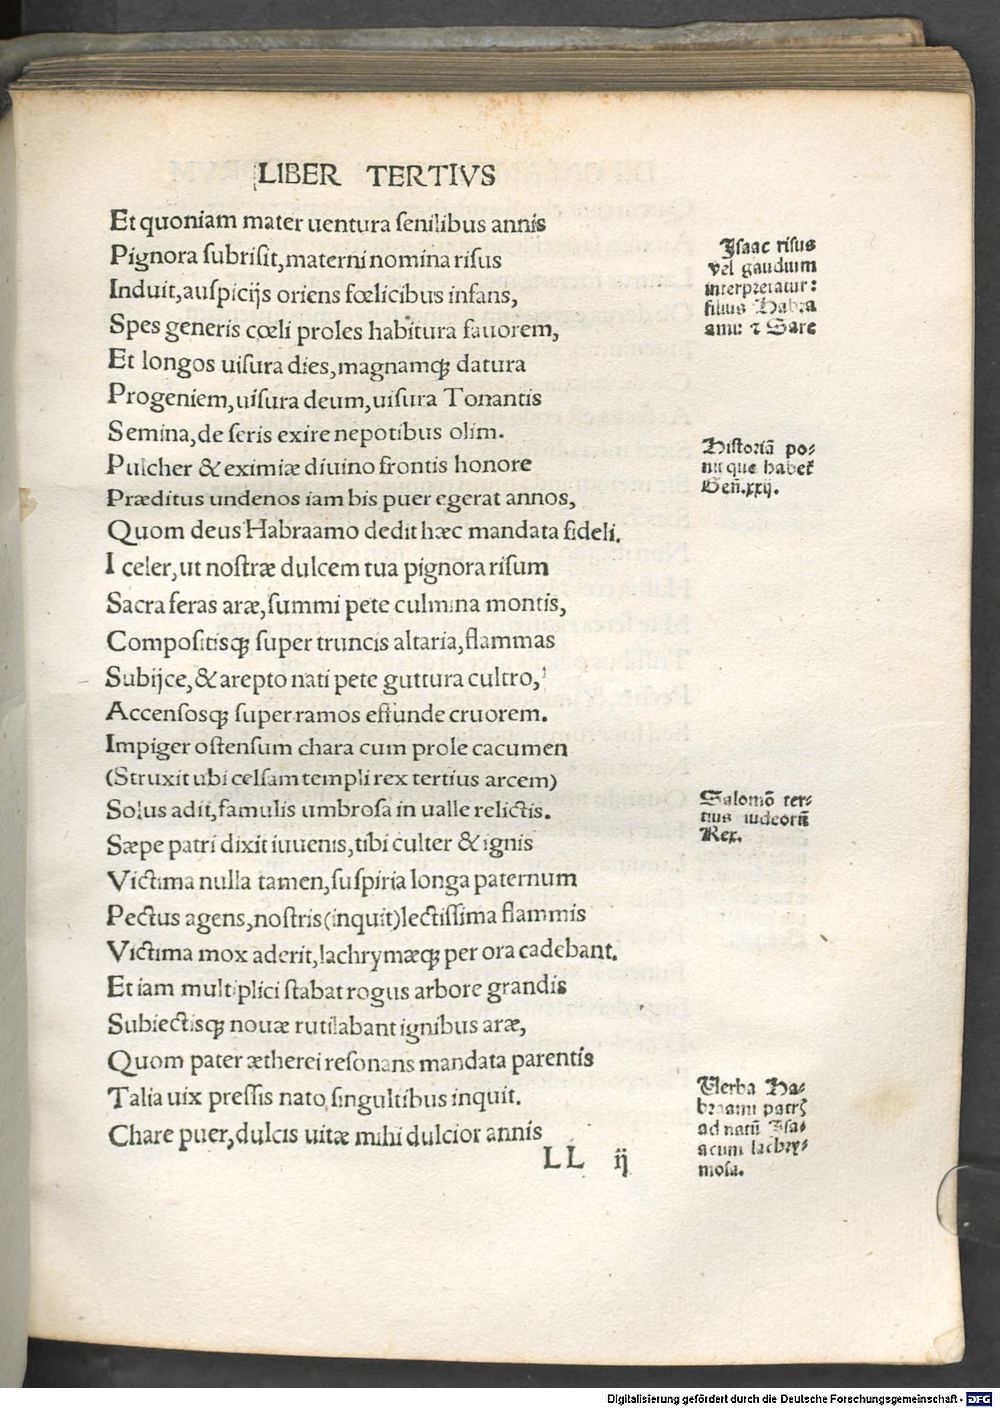 LIBER TERTIVS
Et quoniam mater uentura ſenilibus annis
Pignora ſubriſit,materni nomina riſus
Induit,auſpicijs oriens fœlicibus infans,
Spes generis cœli proles habitura fauorem,
Et longos uiſura dies,magnamqꝫ datura
Progeniem,uiſura deum,uiſura Tonantis
Semina,de ſeris exire nepotibus olim.
Pulcher & eximiæ diuino frontis honore
Præditus undenos iam bis puer egerat annos,
Quom deus Habraamo dedit hæc mandata fideli.
I celer,ut noſtræ dulcem tua pignora riſum
Sacra feras aræ,ſummi pete culmina montis,
Compoſitisqꝫ ſuper truncis altaria,flammas
Subijce,& arepto nati pete guttura cultro,
Accenſosqꝫ ſuper ramos effunde cruorem.
Impiger oſtenſum chara cum prole cacumen
(Struxit ubi celſam templi rex tertius arcem)
Solus adit,famulis umbroſa in ualle relictis.
Sæpe patri dixit iuuenis,tibi culter & ignis
Victima nulla tamen,ſuſpiria longa paternum
Pectus agens,noſtris(inquit)lectiſſima flammis
Victima mox aderit,lachrymæqꝫ per ora cadebant.
Et iam multiplici ſtabat rogus arbore grandis
Subiectisqꝫ nouæ rutilabant ignibus aræ,
Quom pater ætherei reſonans mandata parentis
Talia uix preſſis nato ſingultibus inquit.
Chare puer,dulcis uitæ mihi dulcior annis
LL ij
Iſaac riſus
vel gaudium
interpretatur:
filius Habra
ami ⁊ Sare
Hiſtoriā po⸗
nit que habet᷑
Geñ.xxij.
Salomō ter⸗
tius iudeorū
Rex.
Verba Ha⸗
braami patrꝭ
ad natū Iſa⸗
acum lachry⸗
moſa.
Digitalisierung gefördert durch die Deutsche Forschungsgemeinschaft - DFG